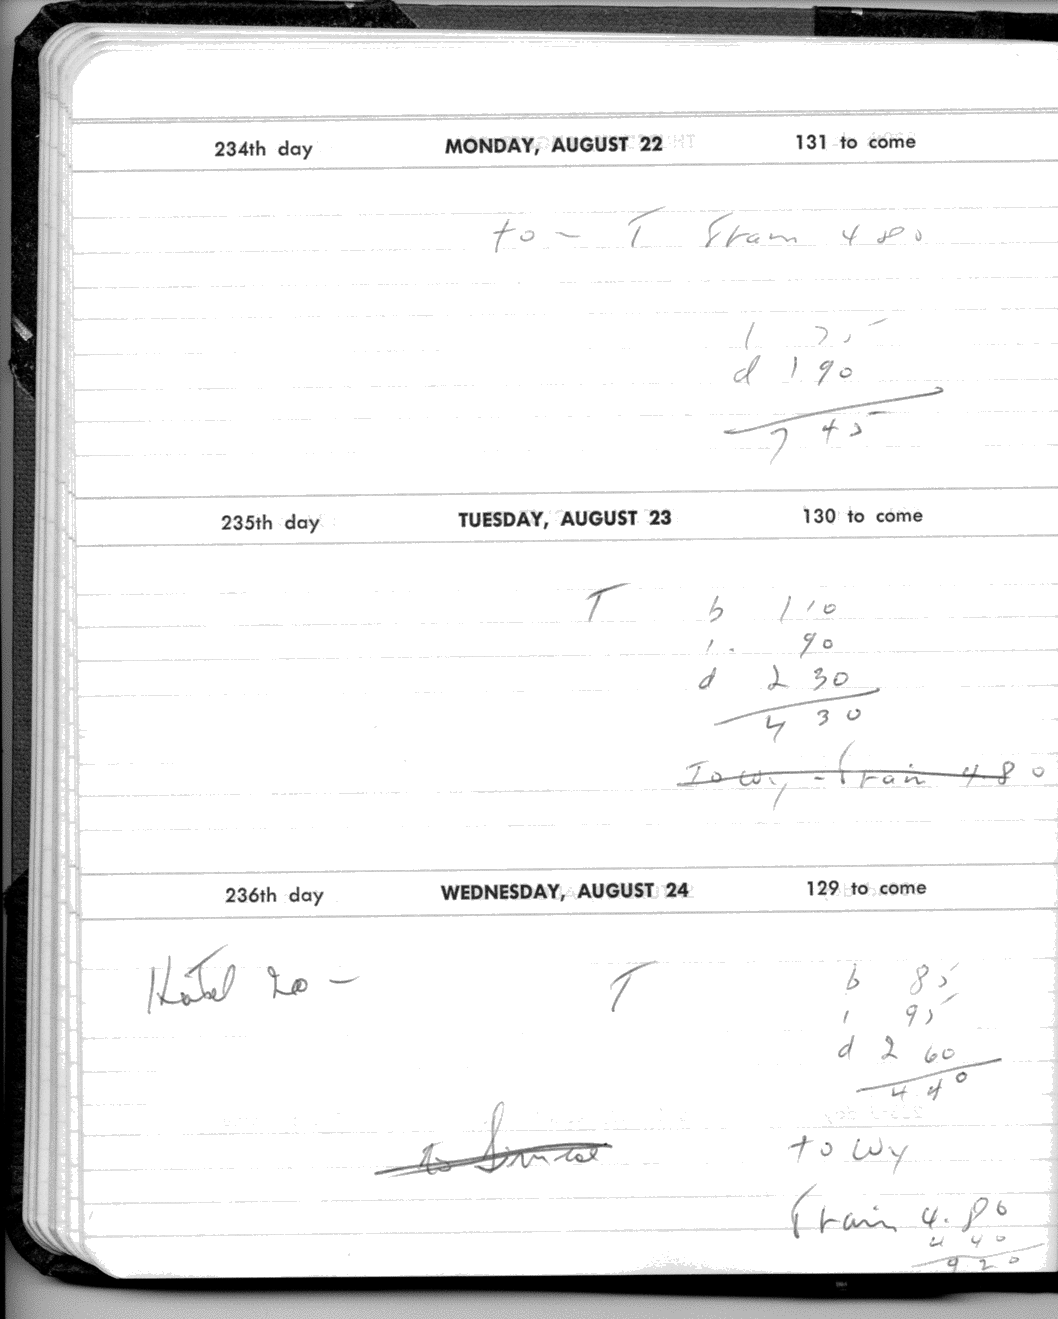 234th day MONDAY, AUGUST 22 131 to come
to - T Train 4 80
l 75
d 1 90
7 45
235th day TUESDAY, AUGUST 23 130 to come
T b 1 10
l. 90
d 2 30
4 30
To Wy - Train 4 80
236th day WEDNESDAY, AUGUST 24 129 to come
Hotel 20 - T b 85
l 95
d 2 60
4 40
to to Wy
Train 4.80
4 40
9 20